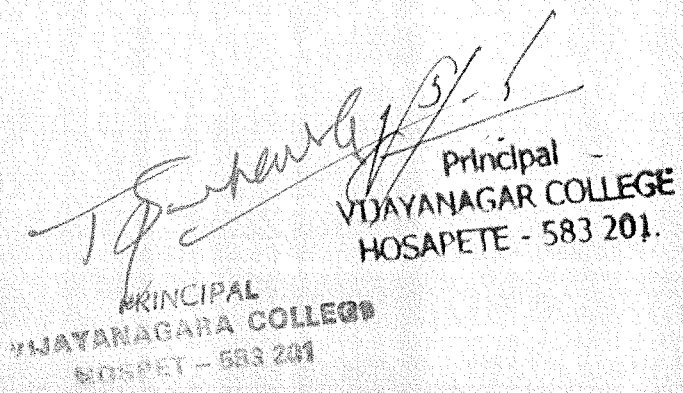 Principal
VIJAYANAGAR COLLEGE
HOSAPETE - 583 201.
PRINCIPAL
VIJAYANAGARA COLLEGE
HOSPET - 583 201